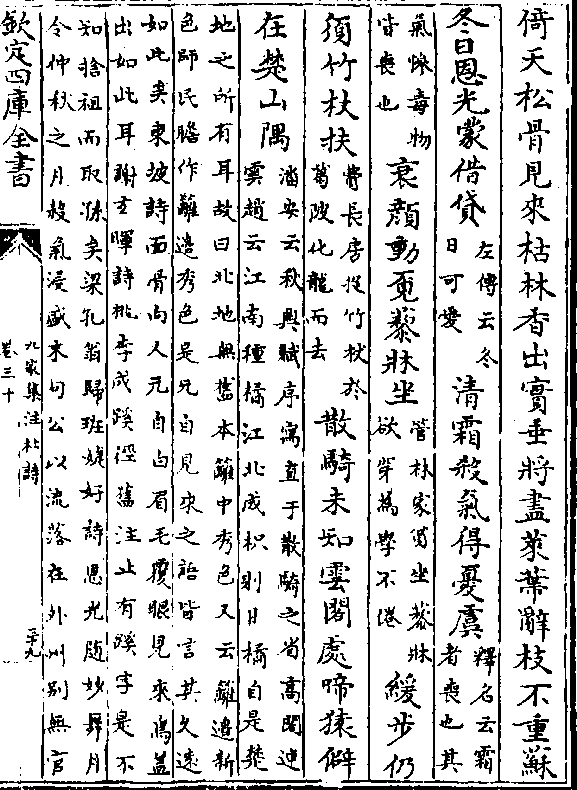 倚天松骨見來枯林香出實垂將盡蔕葉辭枝不重蘇
冬日恩光蒙借貸
左傳云冬
日可愛
清霜殺氣得憂虞
釋名云霜
者喪也其
氣慘毒物
皆喪也
衰顔動覓藜牀坐
管林家坐藜牀
欲穿為學不倦
緩步仍
須竹杖扶
費長房投竹杖於
葛陂化龍而去
散騎未知雲閣處啼猿僻
在楚山隅
潘安云秋興賦序寓直于散騎之省髙閣連
雲趙云江南種橘江北成枳則日橘自是楚
地之所有耳故曰北地無舊本籬中秀色又云籬邉新
色師民瞻作籬邉秀色是兀自見來之語皆言其久遠
如此矣東坡詩面骨向人元自白眉毛覆眼見來烏蓋
出如此耳謝玄暉詩桃李成蹊徑舊注止有蹊字是不
知捨祖而取孫矣梁孔翁歸班婕妤詩恩光隨妙舞月
令仲秋之月殺氣浸盛末句公以流落在外州别無官
欽定四庫全書
九家集注杜詩
卷三十
二十九